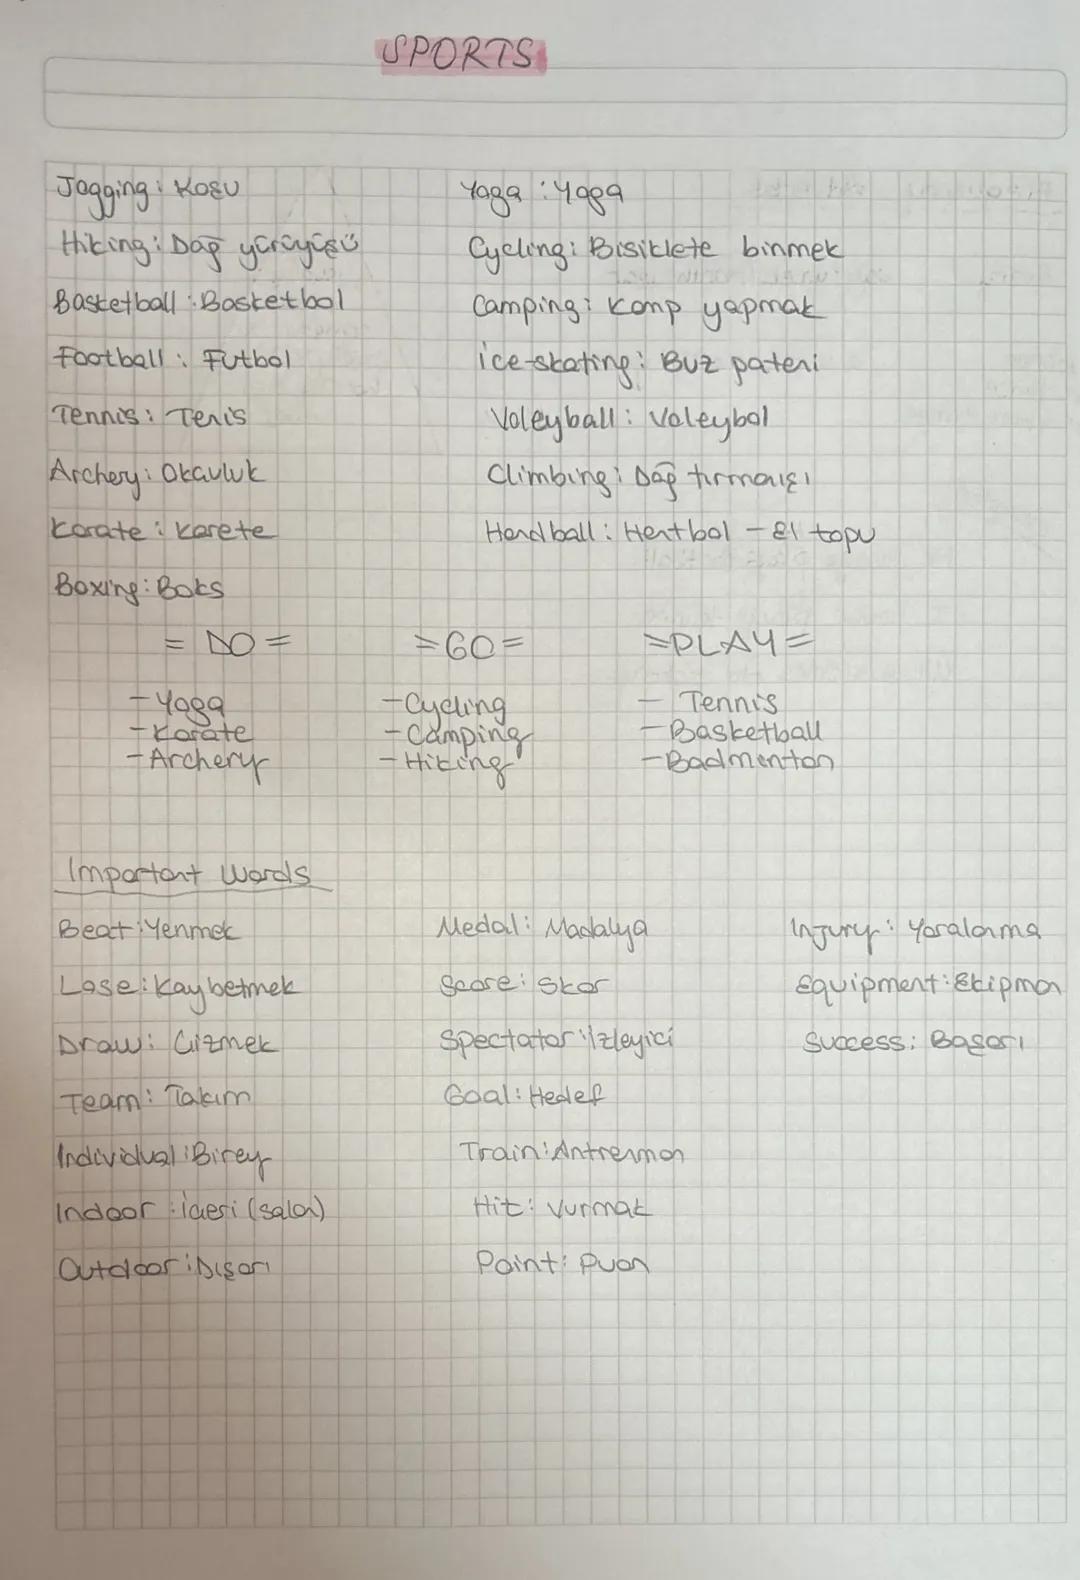 SPORTS
Jogging: Koşu
Yoga: Yoga
Hiking: Dağ yürüyüşü
Cycling: Bisiklete binmek
Basketball: Basketbol
Camping: Kamp yapmak
Football: Futbol
ice-skating: Buz pateni
Tennis: Tenis
Voleyball: Voleybol
Archery: Okçuluk
Climbing: Dağ tırmanışı
Karate: Karete
Handball: Hentbol - El topu
Boxing: Boks
= DO =
= GO =
= PLAY =
- Yoga
- Cycling
- Tennis
- Karate
- Camping
- Basketball
- Archery
- Hiking
- Badminton
Important Words
Beat: Yenmek
Medal: Madalya
Injury: Yaralanma
Lose: Kaybetmek
Score: Skor
Equipment: Ekipman
Draw: Çizmek
Spectator: İzleyici
Success: Başarı
Team: Takım
Goal: Hedef
Individual: Birey
Train: Antrenman
Indoor: İçeri (salon)
Hit: Vurmak
Outdoor: Dışarı
Point: Puan